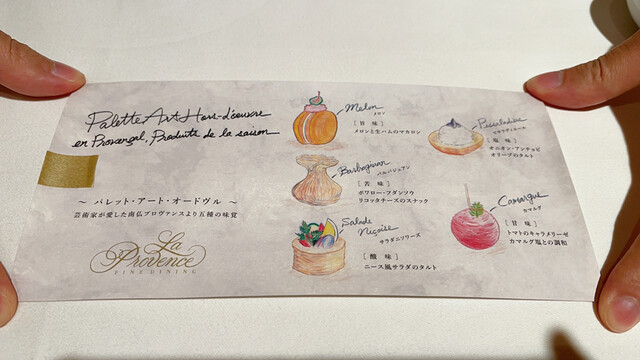 Palette Art Hors-d'oeuvre
en Provençal, Produits de la saison
～ パレット・アート・オードヴル ～
芸術家が愛した南仏プロヴァンスより五種の味覚
La Provence
FINE DINING
Melon
メロン
[旨 味]
メロンと生ハムのマカロン
Barbagiuan
バルバジュアン
[苦 味]
ポワロー・フダンソウ
リコッタチーズのスナック
Salade
Niçoise
サラダニソワーズ
[酸 味]
ニース風サラダのタルト
Pissaladière
ピサラディエール
[塩 味]
オニオン・アンチョビ
オリーブのタルト
Camargue
カマルグ
[甘 味]
トマトのキャラメリーゼ
カマルグ塩との調和